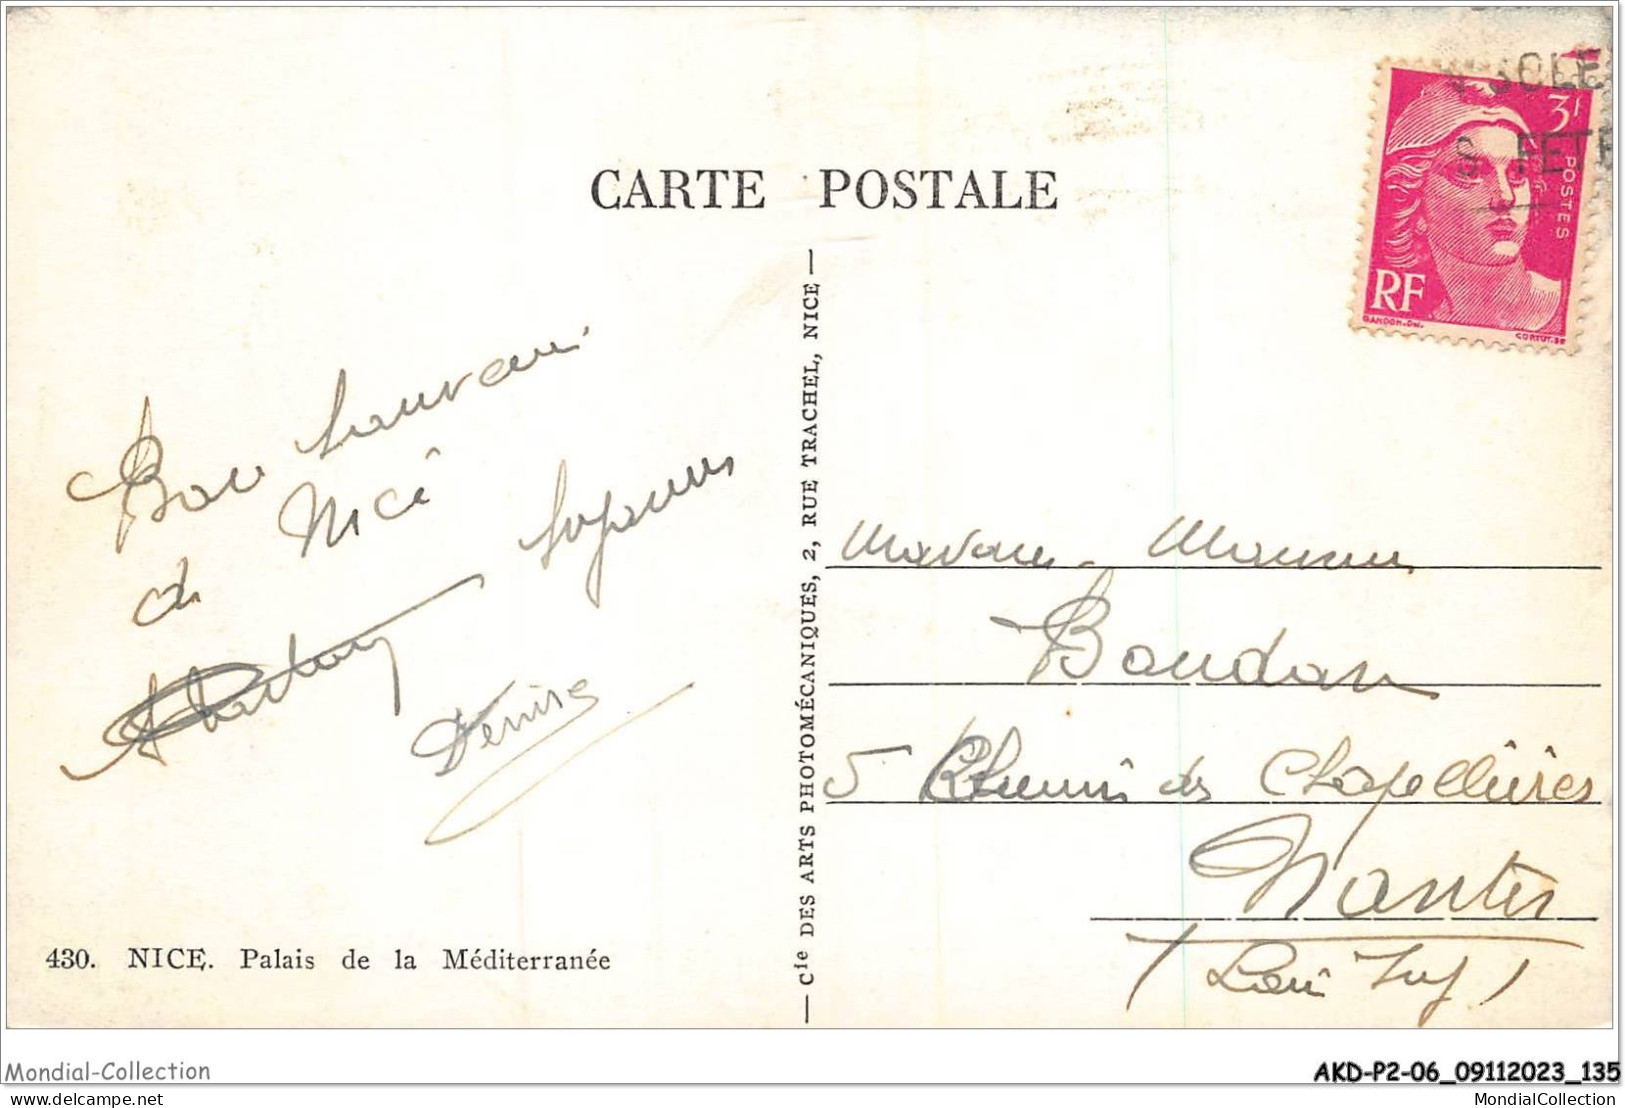 SOLE
S FETE
3F
POSTES
RF
GANDON. DEL.
CORTOT. SC
CARTE POSTALE
Bon souvenir
de Nice
Denise
430. NICE. Palais de la Méditerranée
— Cie DES ARTS PHOTOMÉCANIQUES, 2, RUE TRACHEL, NICE —
Madame, Monsieur
Baudan
5 Chemin des Chapellières
Nantes
(Loire Inf)
Mondial-Collection
delcampe.net
AKD-P2-06_09112023_135
MondialCollection